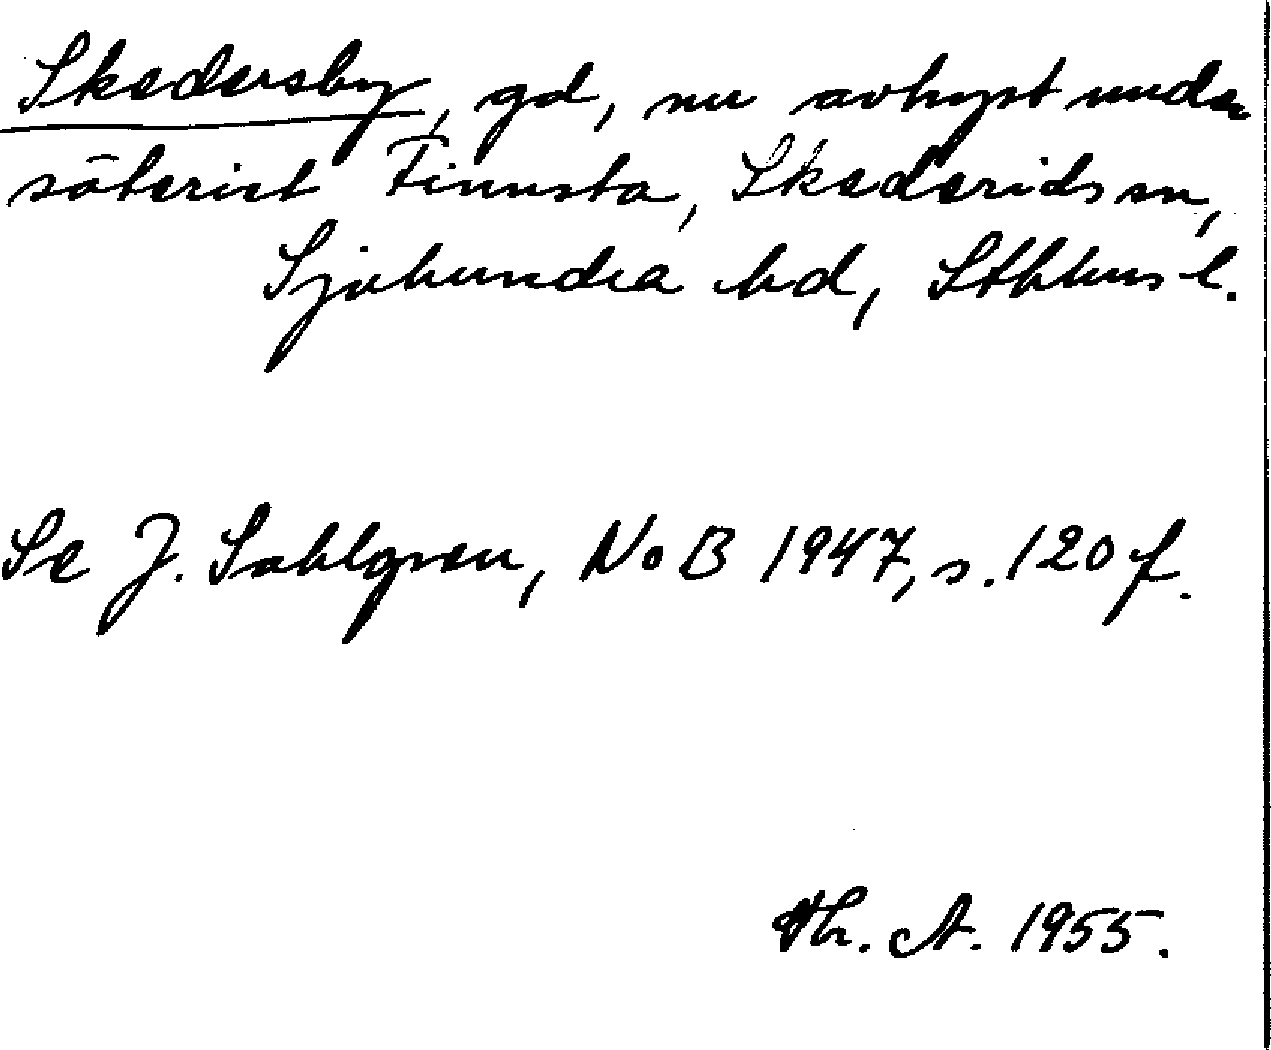 Skedersby, gd, nu avhyst under
säteriet Finnsta, Skederids sn,
Sjuhundra hd, Sthlms l.
Se J. Sahlgren, NoB 1947, s. 120 f.
Th. A. 1955.